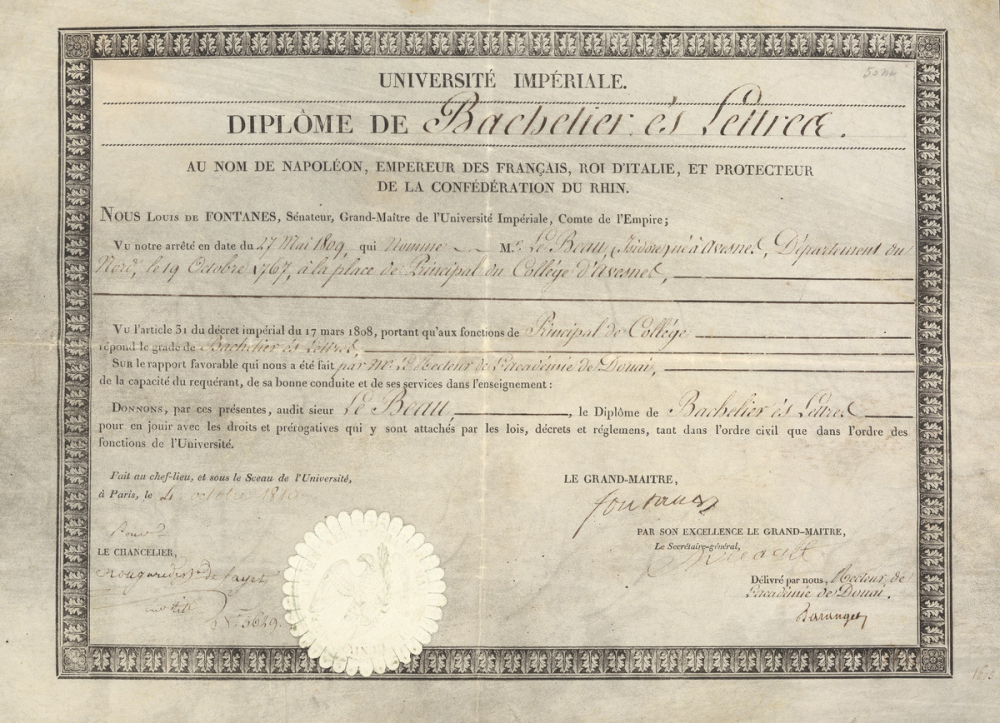 UNIVERSITÉ IMPÉRIALE.
DIPLÔME DE Bachelier ès Lettres.
AU NOM DE NAPOLÉON, EMPEREUR DES FRANÇAIS, ROI D'ITALIE, ET PROTECTEUR
DE LA CONFÉDÉRATION DU RHIN.
NOUS LOUIS DE FONTANES, Sénateur, Grand-Maître de l'Université Impériale, Comte de l'Empire;
VU notre arrêté en date du 27 Mai 1809, qui Nomme M.r Le Beau, Isidore, né à Avesnes, Département du
Nord, le 19 Octobre 1767, à la place de Principal du Collége d'Avesnes,
VU l'article 31 du décret impérial du 17 mars 1808, portant qu'aux fonctions de Principal de Collége
répond le grade de Bachelier ès Lettres,
SUR le rapport favorable qui nous a été fait par Mr. Le Recteur de l'académie de Douai,
de la capacité du requérant, de sa bonne conduite et de ses services dans l'enseignement :
DONNONS, par ces présentes, audit sieur Le Beau, , le Diplôme de Bachelier ès Lettres
pour en jouir avec les droits et prérogatives qui y sont attachés par les lois, décrets et réglemens, tant dans l'ordre civil que dans l'ordre des
fonctions de l'Université.
Fait au chef-lieu, et sous le Sceau de l'Université,
à Paris, le 4 octobre
LE CHANCELIER,
N.° 5649.
LE GRAND-MAITRE,
Fontanes
PAR SON EXCELLENCE LE GRAND-MAITRE,
Le Secrétaire-général,
Délivré par nous, Recteur de
l'académie de Douai.
Taranget